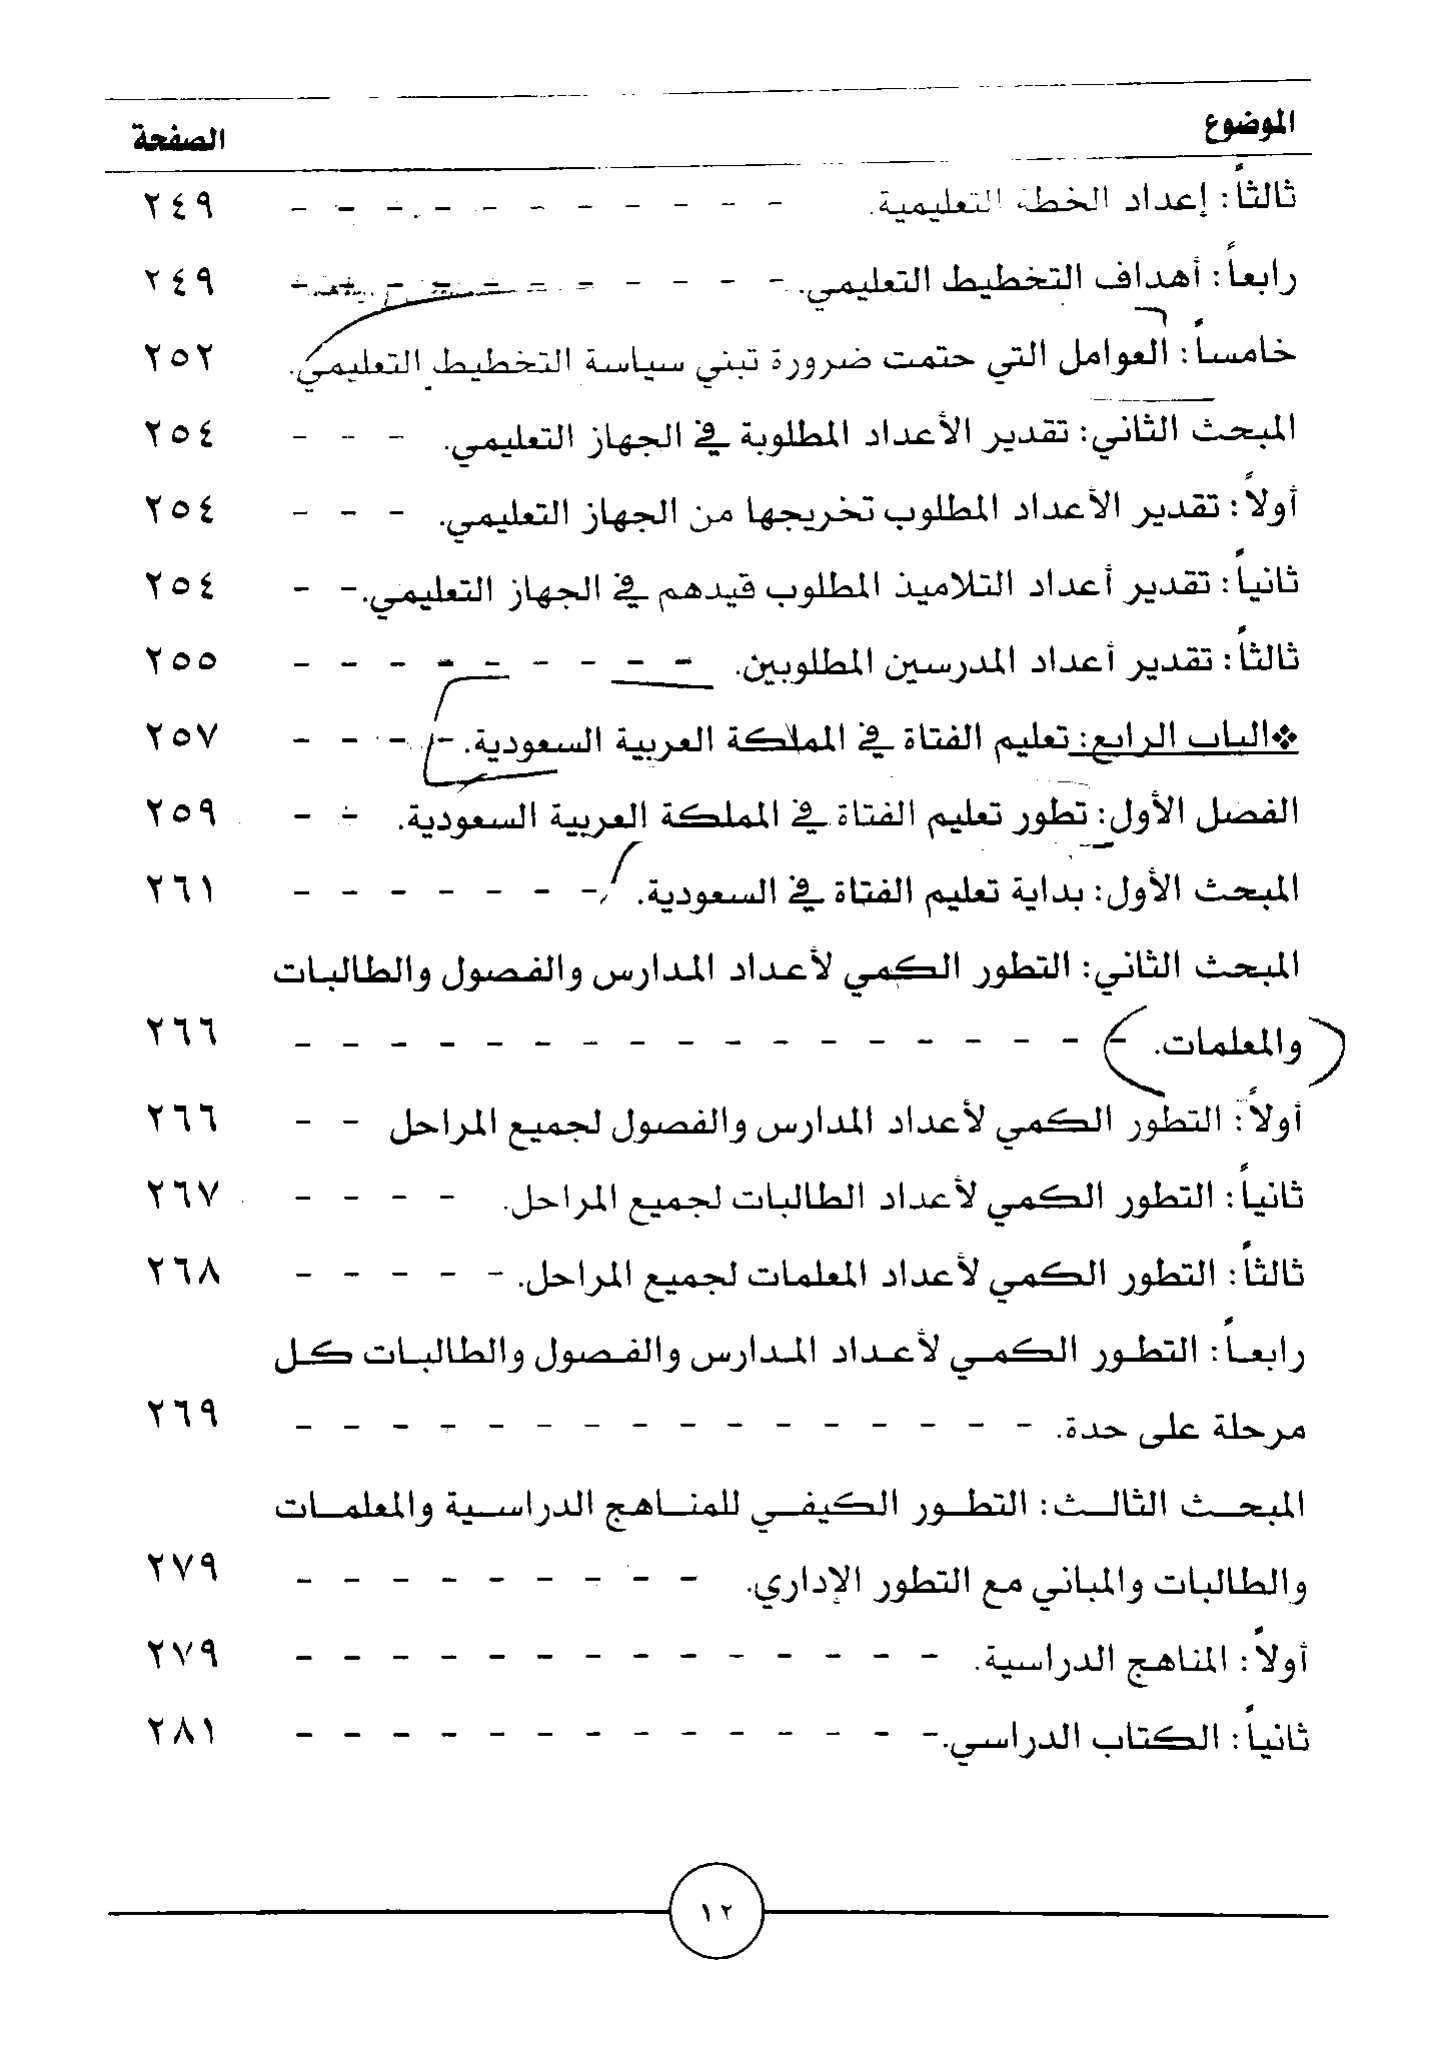 الموضوع الصفحة
ثالثاً: إعداد الخطة التعليمية. - - - - - - - - - - - ٢٤٩
رابعاً: أهداف التخطيط التعليمي. - - - - - - - - - - - ٢٤٩
خامساً: العوامل التي حتمت ضرورة تبني سياسة التخطيط التعليمي. ٢٥٢
المبحث الثاني: تقدير الأعداد المطلوبة في الجهاز التعليمي. - - - ٢٥٤
أولاً: تقدير الأعداد المطلوب تخريجها من الجهاز التعليمي. - - - ٢٥٤
ثانياً: تقدير أعداد التلاميذ المطلوب قيدهم في الجهاز التعليمي. - - ٢٥٤
ثالثاً: تقدير أعداد المدرسين المطلوبين. - - - - - - - - - ٢٥٥
❖الباب الرابع: تعليم الفتاة في المملكة العربية السعودية. - - - - ٢٥٧
الفصل الأول: تطور تعليم الفتاة في المملكة العربية السعودية. - - ٢٥٩
المبحث الأول: بداية تعليم الفتاة في السعودية. - - - - - - - ٢٦١
المبحث الثاني: التطور الكمي لأعداد المدارس والفصول والطالبات
والمعلمات. - - - - - - - - - - - - - - - - - - ٢٦٦
أولاً: التطور الكمي لأعداد المدارس والفصول لجميع المراحل - - ٢٦٦
ثانياً: التطور الكمي لأعداد الطالبات لجميع المراحل. - - - - ٢٦٧
ثالثاً: التطور الكمي لأعداد المعلمات لجميع المراحل. - - - - - ٢٦٨
رابعاً: التطور الكمي لأعداد المدارس والفصول والطالبات كل
مرحلة على حدة. - - - - - - - - - - - - - - - - ٢٦٩
المبحث الثالث: التطور الكيفي للمناهج الدراسية والمعلمات
والطالبات والمباني مع التطور الإداري. - - - - - - - - - ٢٧٩
أولاً: المناهج الدراسية. - - - - - - - - - - - - - - ٢٧٩
ثانياً: الكتاب الدراسي. - - - - - - - - - - - - - - ٢٨١
١٢